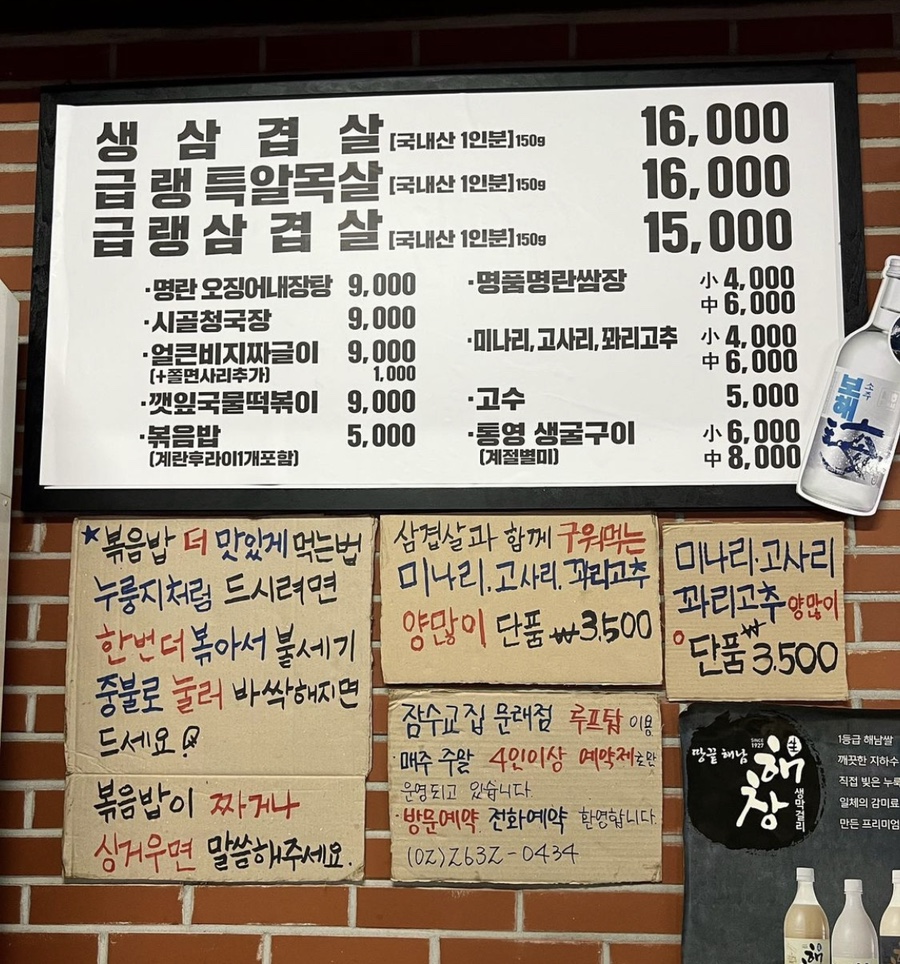 생삼겹살 [국내산 1인분]150g 16,000
급랭특알목살 [국내산 1인분]150g 16,000
급랭삼겹살 [국내산 1인분]150g 15,000
·명란 오징어내장탕 9,000
·시골청국장 9,000
·얼큰비지짜글이 9,000
(+쫄면사리추가) 1,000
·깻잎국물떡볶이 9,000
·볶음밥 5,000
(계란후라이1개포함)
·명품명란쌈장 小 4,000
中 6,000
·미나리, 고사리, 꽈리고추 小 4,000
中 6,000
·고수 5,000
·통영 생굴구이 小 6,000
(계절별미) 中 8,000
보해
소주
★볶음밥 더 맛있게 먹는법
누룽지처럼 드시려면
한번더 볶아서 불세기
중불로 눌러 바싹해지면
드세요
볶음밥이 짜거나
싱거우면 말씀해주세요.
삼겹살과 함께 구워먹는
미나리.고사리.꽈리고추
양많이 단품 ₩3.500
미나리.고사리
꽈리고추 양많이
단품 ₩3.500
잠수교집 문래점 루프탑 이용
·매주 주말 4인이상 예약제로만
운영되고 있습니다.
·방문예약 전화예약 환영합니다.
(02)2632-0434
땅끝 해남
SINCE 1927
해창
生
생막걸리
1등급 해남쌀
깨끗한 지하수
직접 빚은 누룩
일체의 감미료
만든 프리미엄